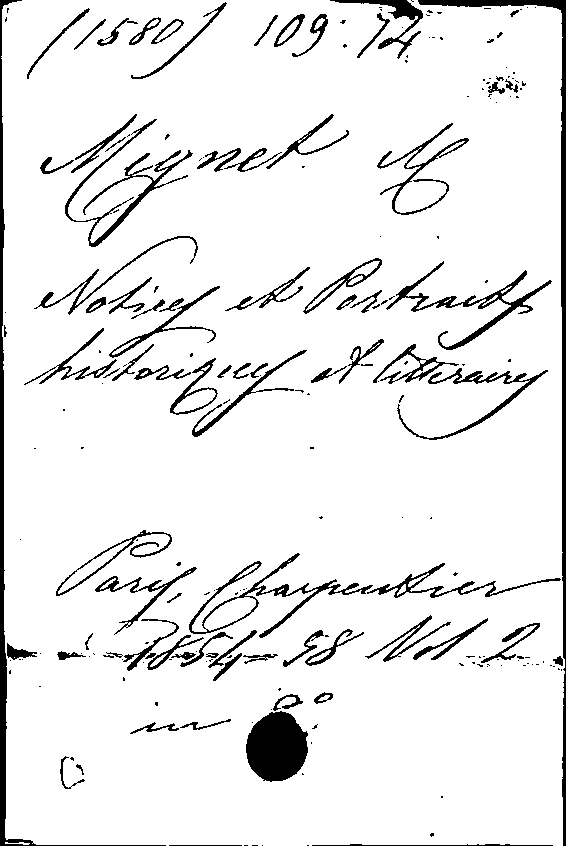 (1580) 109: 74
Mignet M
Notices et Portraits
historiques et litteraires
Paris, Charpentier
1854-58 Vol 2
in 8°